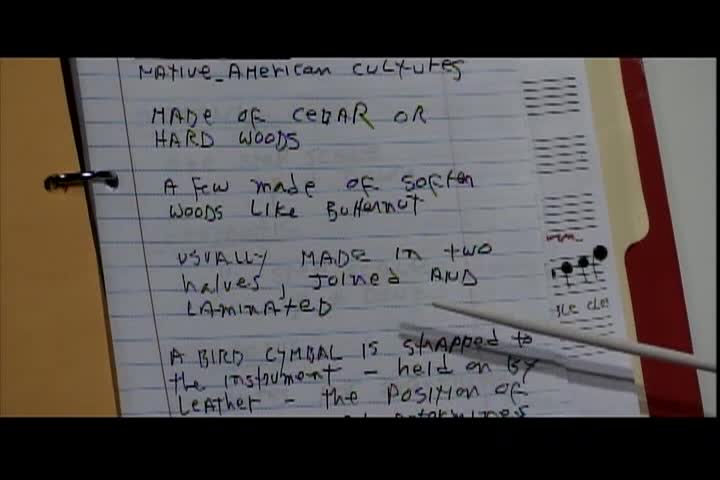 NATIVE-AMERICAN CULTURES
MADE OF CEDAR OR
HARD WOODS
A FEW made OF SOFTER
WOODS LIKE BUTTERNUT
USUALLY MADE IN TWO
halves, JOINED AND
LAMINATED
A BIRD CYMBAL IS STRAPPED TO
the INSTRUMENT - held ON BY
LEATHER - the POSITION OF